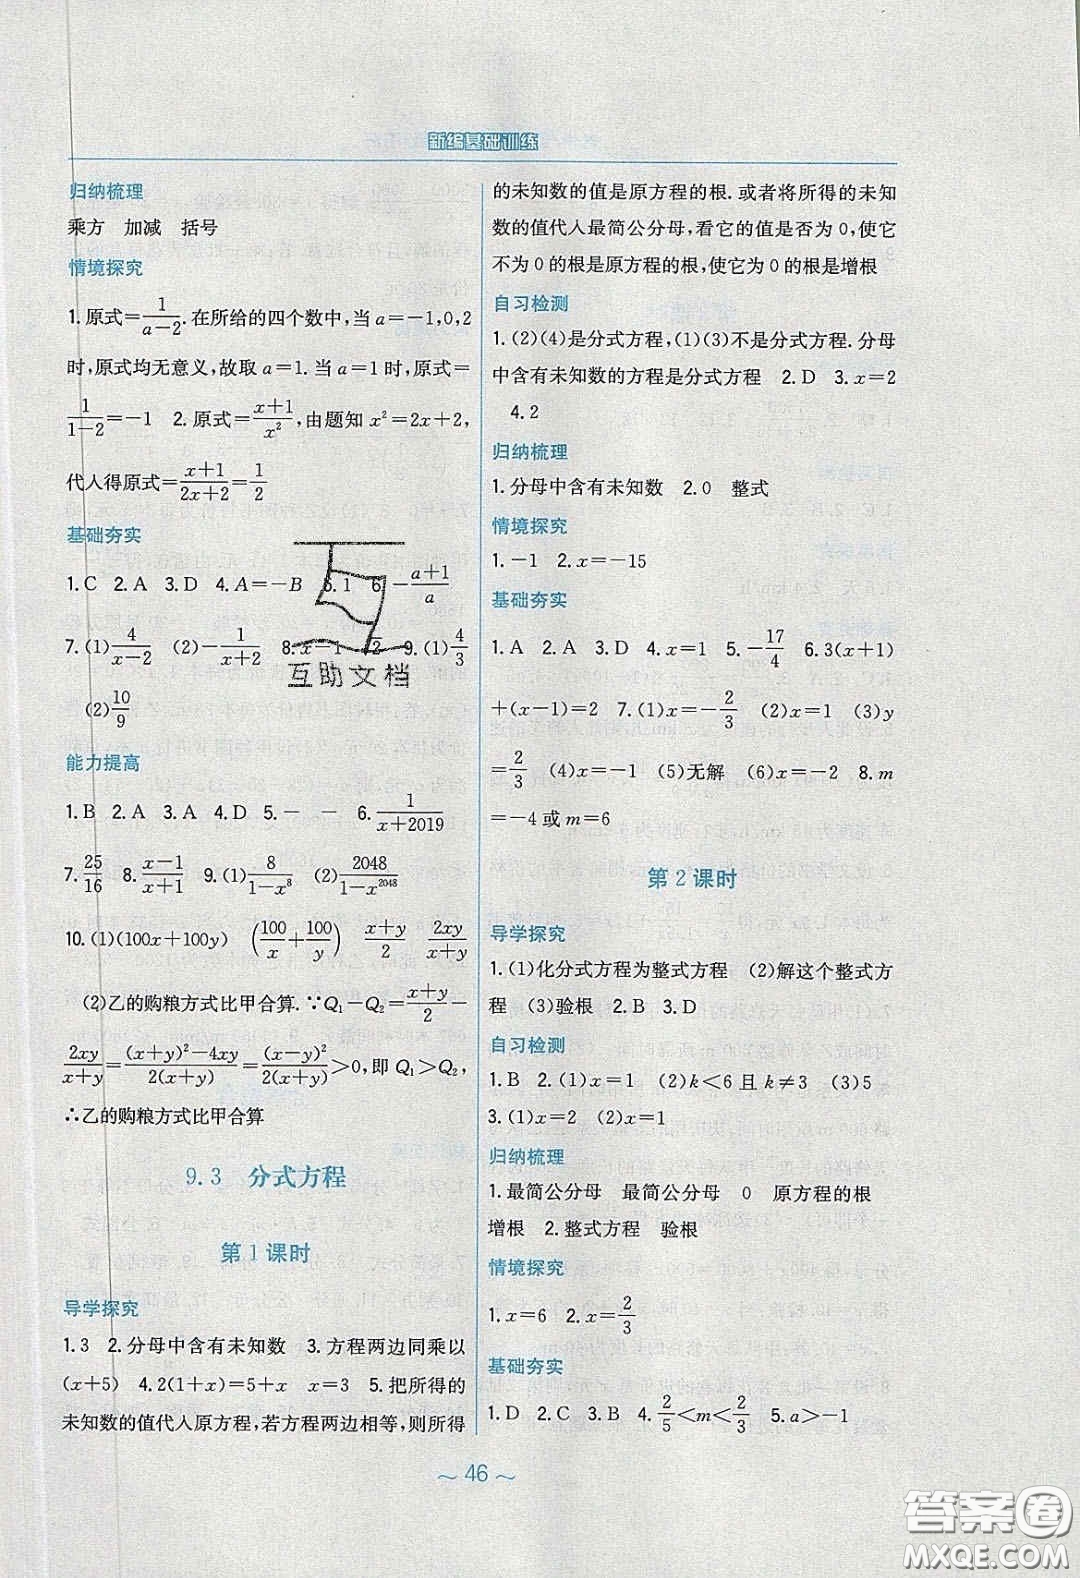 新编基础训练
归纳梳理
乘方 加减 括号
情境探究
1.原式=1/(a-2).在所给的四个数中,当a=-1,0,2
时,原式均无意义,故取a=1.当a=1时,原式=
1/(1-2)=-1 2.原式=(x+1)/x²,由题知x²=2x+2,
代人得原式=(x+1)/(2x+2)=1/2
基础夯实
1.C 2.A 3.D 4.A=-B 5.1 6.-(a+1)/a
7.(1)4/(x-2) (2)-1/(x+2) 8.x-1 √2 9.(1)4/3
(2)10/9
能力提高
1.B 2.A 3.A 4.D 5.- - 6.1/(x+2019)
7.25/16 8.(x-1)/(x+1) 9.(1)8/(1-x⁸) (2)2048/(1-x²⁰⁴⁸)
10.(1)(100x+100y) (100/x+100/y) (x+y)/2 2xy/(x+y)
(2)乙的购粮方式比甲合算.∵Q₁-Q₂=(x+y)/2-
2xy/(x+y)=((x+y)²-4xy)/(2(x+y))=(x-y)²/(2(x+y))>0,即Q₁>Q₂,
∴乙的购粮方式比甲合算
9.3 分式方程
第1课时
导学探究
1.3 2.分母中含有未知数 3.方程两边同乘以
(x+5) 4.2(1+x)=5+x x=3 5.把所得的
未知数的值代人原方程,若方程两边相等,则所得
的未知数的值是原方程的根.或者将所得的未知
数的值代人最简公分母,看它的值是否为0,使它
不为0的根是原方程的根,使它为0的根是增根
自习检测
1.(2)(4)是分式方程,(1)(3)不是分式方程.分母
中含有未知数的方程是分式方程 2.D 3.x=2
4.2
归纳梳理
1.分母中含有未知数 2.0 整式
情境探究
1.-1 2.x=-15
基础夯实
1.A 2.A 3.D 4.x=1 5.-17/4 6.3(x+1)
+(x-1)=2 7.(1)x=-2/3 (2)x=1 (3)y
=2/3 (4)x=-1 (5)无解 (6)x=-2 8.m
=-4或m=6
第2课时
导学探究
1.(1)化分式方程为整式方程 (2)解这个整式方
程 (3)验根 2.B 3.D
自习检测
1.B 2.(1)x=1 (2)k<6且k≠3 (3)5
3.(1)x=2 (2)x=1
归纳梳理
1.最简公分母 最简公分母 0 原方程的根
增根 2.整式方程 验根
情境探究
1.x=6 2.x=2/3
基础夯实
1.D 2.C 3.B 4.2/5<m<2/3 5.a>-1
~ 46 ~
互助文档
答案圈
MXQE.COM